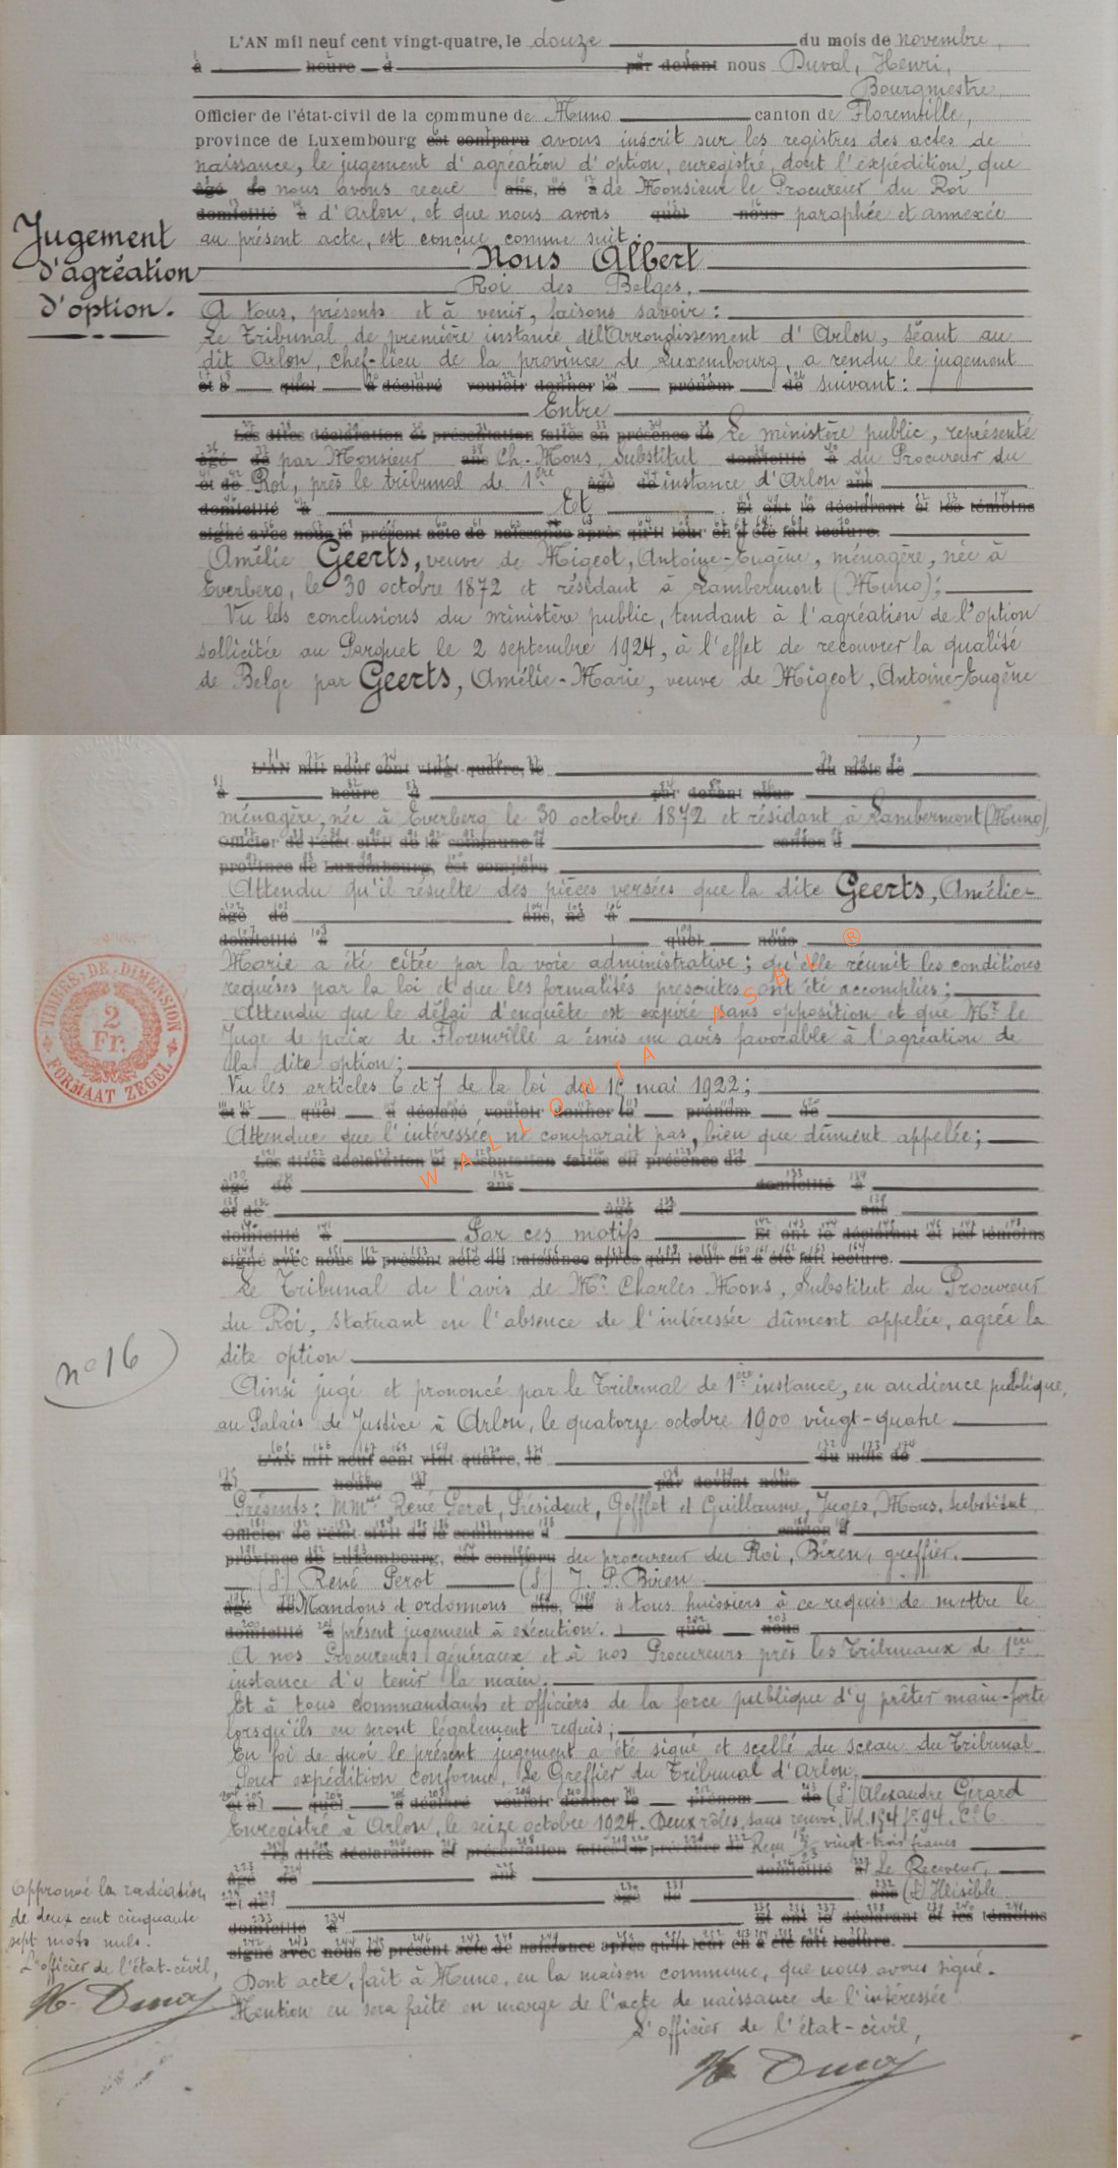 L'AN mil neuf cent vingt-quatre, le douze du mois de novembre,
à heure à par devant nous Duval, Henri,
Bourgmestre,
Officier de l'état-civil de la commune de Muno canton de Florenville,
province de Luxembourg est comparu avons inscrit sur les registres des actes de
naissance, le jugement d'agréation d'option, enregistré, dont l'expédition, que
âgé de nous avons reçue ans, né à de Monsieur le Procureur du Roi
domicilié à d'Arlon, et que nous avons quel nous paraphée et annexée
au présent acte, est conçue comme suit :
Jugement
d'agréation
d'option.
Nous Albert
Roi des Belges,
A tous, présents et à venir, faisons savoir :
Le Tribunal de première instance de l'Arrondissement d'Arlon, séant au
dit Arlon, chef-lieu de la province de Luxembourg, a rendu le jugement
et à quel a déclaré vouloir donner le prénom de suivant :
Entre
Les dites déclaration et présentation faites en présence de Le ministère public, représenté
âgé de par Monsieur ans Ch. Mons, Substitut domicilié à du Procureur du
et de Roi, près le tribunal de 1ère âgé de instance d'Arlon ans
domicilié à Et Et ont le déclarant et les témoins
signé avec nous le présent acte de naissance après qu'il leur en a été fait lecture.
Amélie Geerts, veuve de Migeot, Antoine-Eugène, ménagère, née à
Everberg, le 30 octobre 1872 et résidant à Lambermont (Muno);
Vu les conclusions du ministère public, tendant à l'agréation de l'option
sollicitée au Parquet le 2 septembre 1924, à l'effet de recouvrer la qualité
de Belge par Geerts, Amélie-Marie, veuve de Migeot, Antoine-Eugène
L'AN mil neuf cent vingt-quatre, le du mois de
à heure à par devant nous
ménagère, née à Everberg le 30 octobre 1872 et résidant à Lambermont (Muno),
Officier de l'état-civil de la commune d canton d
province de Luxembourg, est comparu
Attendu qu'il résulte des pièces versées que la dite Geerts, Amélie-
âgé de ans, né à
domicilié à quel nous
Marie a été citée par la voie administrative ; qu'elle réunit les conditions
requises par la loi et que les formalités prescrites ont été accomplies ;
Attendu que le délai d'enquête est expiré sans opposition et que Mr le
Juge de paix de Florenville a émis un avis favorable à l'agréation de
la dite option ;
TIMBRE DE DIMENSION
2
Fr.
FORMAAT ZEGEL
Vu les articles 6 et 7 de la loi du mai 1922 ;
et à quel a déclaré vouloir donner le prénom de
Attendue que l'intéressée ne comparait pas, bien que dûment appelée ;
Les dites déclaration et présentation faites en présence de
âgé de ans domicilié à
et de âgé de ans
domicilié à Par ces motifs Et ont le déclarant et les témoins
signé avec nous le présent acte de naissance après qu'il leur en a été fait lecture.
Le Tribunal de l'avis de Mr Charles Mons, Substitut du Procureur
du Roi, Statuant en l'absence de l'intéressée dûment appelée, agrée la
dite option
no 16
Ainsi jugé et prononcé par le Tribunal de 1ère instance, en audience publique,
au Palais de Justice à Arlon, le quatorze octobre 1900 vingt-quatre
L'AN mil neuf cent vingt quatre, le du mois de
heure à par devant nous
Présents : MMrs René Perot, Président, Gofflot et Guillaume, Juges, Mons, substitut
Officier de l'état civil de la commune d canton d
province de Luxembourg, est comparu du procureur du Roi, Biren, greffier.
(S.) René Perot (S.) J. P. Biren
âgé de Mandons et ordonnons ans, né à tous huissiers à ce requis de mettre le
domicilié à présent jugement à exécution. quel nous
A nos Procureurs généraux et à nos Procureurs près les Tribunaux de 1ère
instance d'y tenir la main.
Et à tous commandants et officiers de la force publique d'y prêter main-forte
lorsqu'ils en seront légalement requis ;
En foi de quoi le présent jugement a été signé et scellé du sceau du Tribunal
Pour expédition conforme, Le Greffier du Tribunal d'Arlon,
et à quel a déclaré vouloir donner le prénom de (S.) Alexandre Gerard
Enregistré à Arlon, le seize octobre 1924. Deux rôles, sans renvoi, Vol. 154 fo 94. Ce 6.
Les dites déclaration et présentation faites en présence de Reçu vingt-trois francs
âgé de ans domicilié à Le Receveur,
et de âgé de ans (S.) Illisible
domicilié à Et ont le déclarant et les témoins
signé avec nous le présent acte de naissance après qu'il leur en a été fait lecture.
Approuvé la radiation
de deux cent cinquante
sept mots nuls.
L'officier de l'état-civil,
H. Duval
Dont acte, fait à Muno, en la maison commune, que nous avons signé.
Mention en sera faite en marge de l'acte de naissance de l'intéressée
L'officier de l'état-civil,
H. Duval
WALLONIA ASBL ®